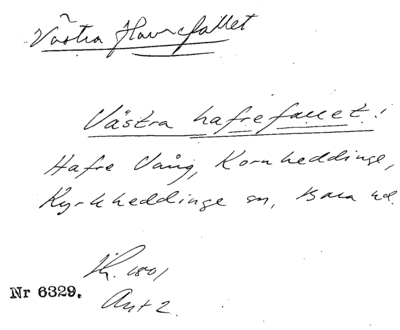 Västra Havrefallet
Västra hafrefallet!
Hafre Vång, Kornheddinge,
Kyrkheddinge sn, Bara hd.
1801
Nr 6329.
Akt 2.